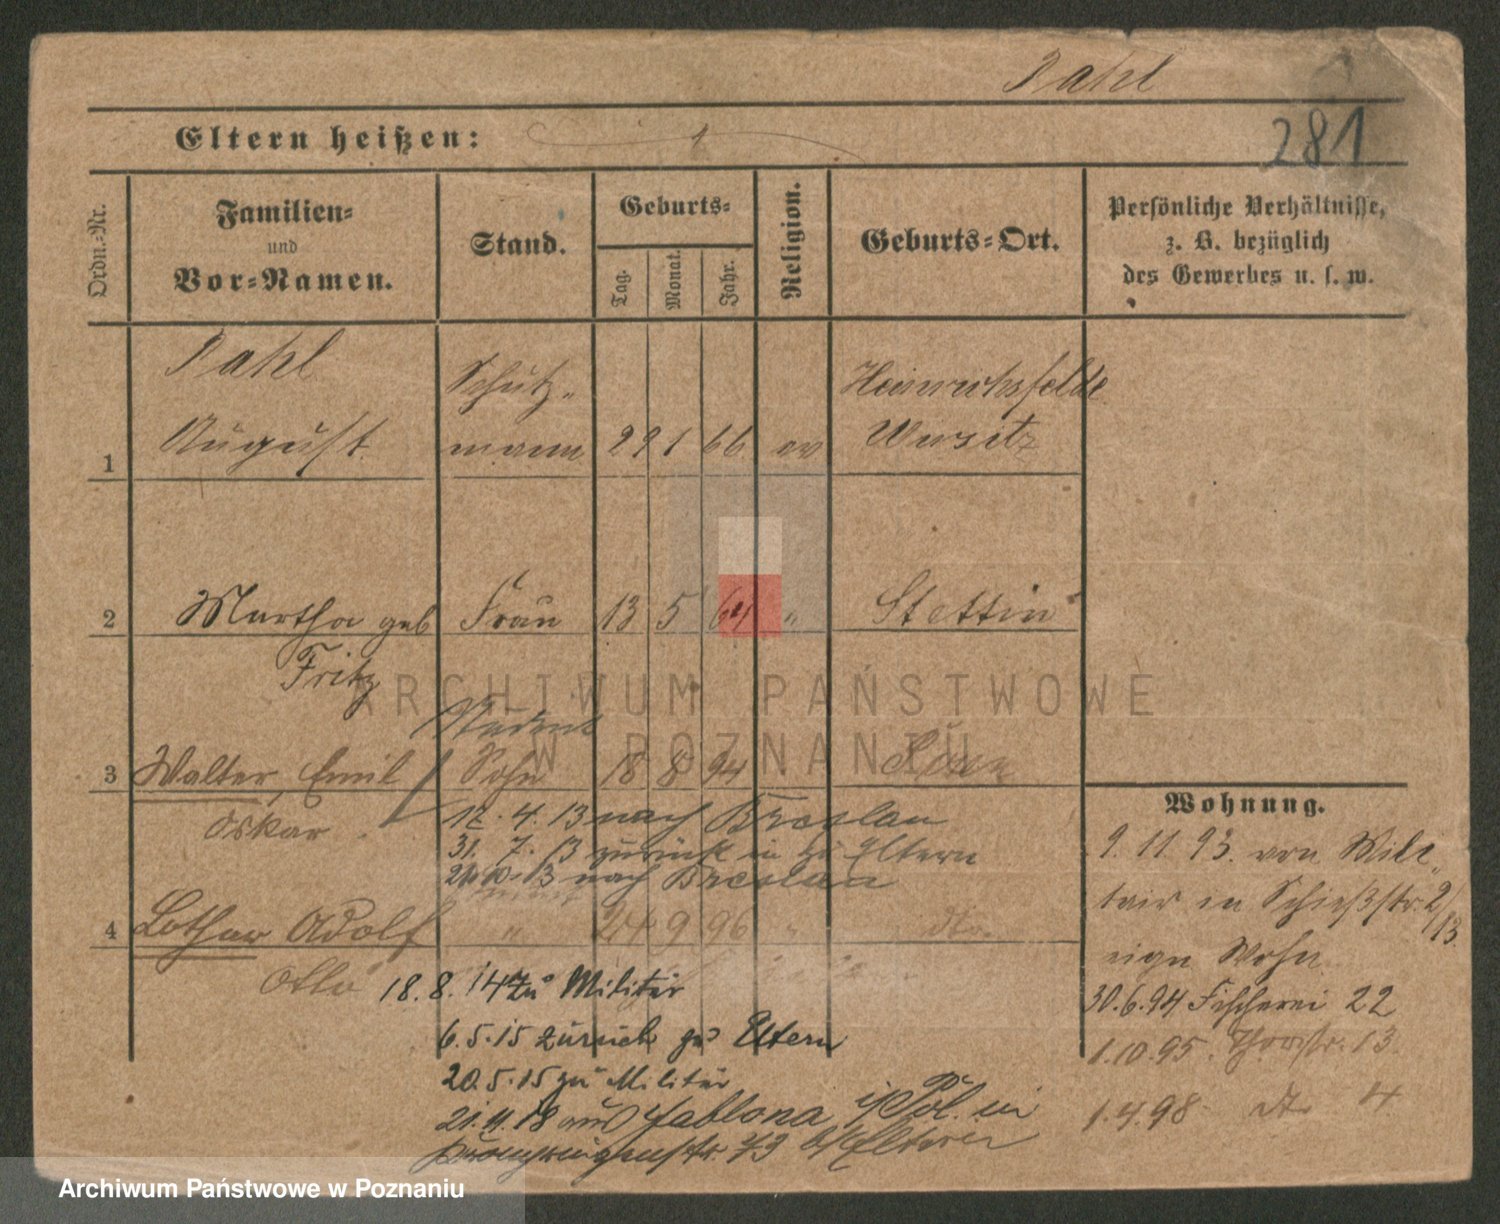 Pahl
281
Eltern heißen:
Ordn.-Nr.
Familien-
und
Vor-Namen.
Stand.
Geburts-
Tag.
Monat.
Jahr.
Religion.
Geburts-Ort.
Persönliche Verhältnisse,
z. B. bezüglich
des Gewerbes u. s. w.
Pahl
August
Schutz-
mann
29 1 66 ev
Heinrichsfelde
Wirsitz
1
2 Martha geb Frau 13 5 64 " Stettin
Fritz
Student
3 Walter, Emil Sohn 18 8 94
Oskar
17. 4. 13 nach Breslau
31. 7. 13 zurück zu Eltern
13 nach Breslau
4 Lothar Adolf " 24 9 96 " dto.
Otto
18. 8. 14 zu Militär
6. 5. 15 zurück zu Eltern
20. 5. 15 zu Militär
21. 11. 18 aus Jablona i/Pol. in
Kronprinzenstr. 73 b/ Eltern
Wohnung.
9. 11 93. von Mili-
tair in Schießstr. 2/
13.
eign Wohn.
30. 6. 94 Fischerei 22
1. 10. 95. 13.
1. 4. 98 dto 4
ARCHIWUM PAŃSTWOWE
W POZNANIU
Archiwum Państwowe w Poznaniu